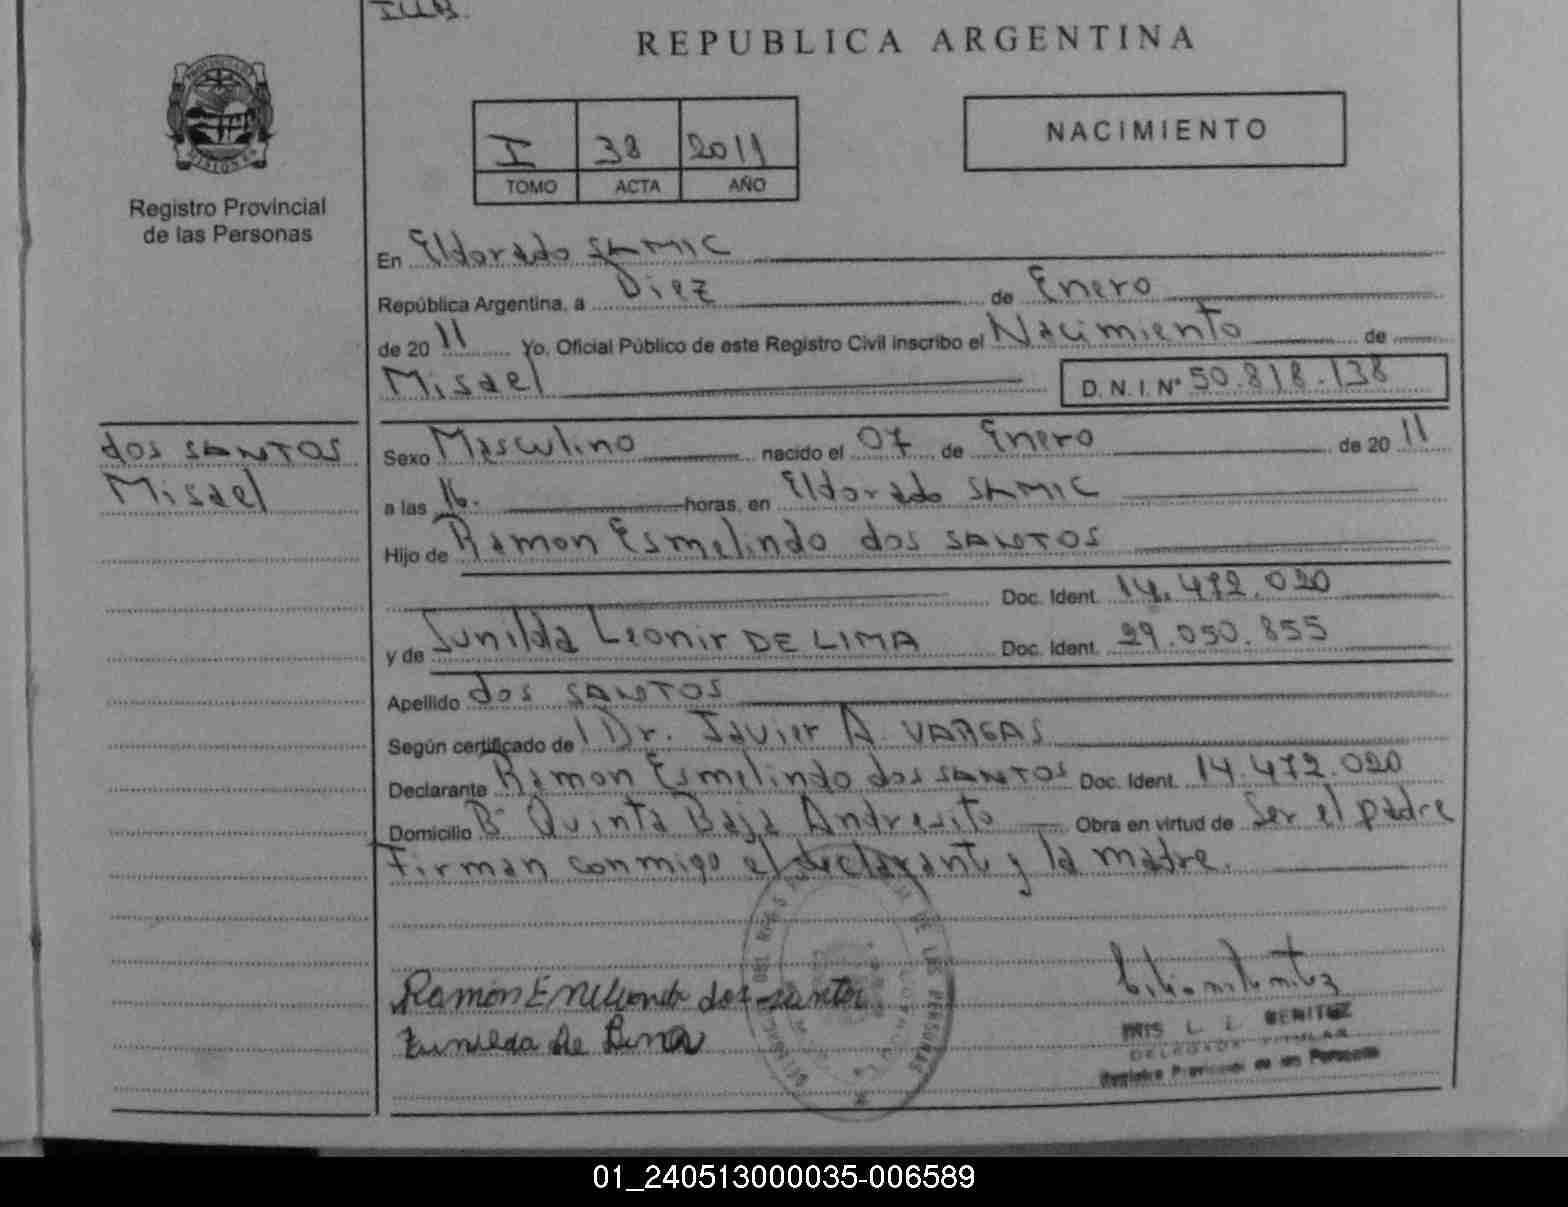 REPUBLICA ARGENTINA
I 38 2011
TOMO ACTA AÑO
NACIMIENTO
Registro Provincial
de las Personas
En Eldorado SAMIC
República Argentina, a Diez de Enero
de 2011 Yo, Oficial Público de este Registro Civil inscribo el Nacimiento de
Misael D.N.I. Nº 50.818.138
dos SANTOS
Misael
Sexo Masculino nacido el 07 de Enero de 2011
a las 16. horas, en Eldorado SAMIC
Hijo de Ramon Esmelindo dos SANTOS
Doc. Ident. 14.472.020
y de Sunilda Leonir DE LIMA Doc. Ident. 29.050.855
Apellido dos SANTOS
Según certificado de Dr. Javier A. VARGAS
Declarante Ramon Esmelindo dos SANTOS Doc. Ident. 14.472.020
Domicilio Bº Quinta Baja Andresito Obra en virtud de Ser el padre
Firman conmigo el declarante y la madre.
Ramón dos santos
de Lima
IRIS L. L. BENITEZ
DELEGADA TITULAR
Registro Provincial de las Personas
01_240513000035-006589